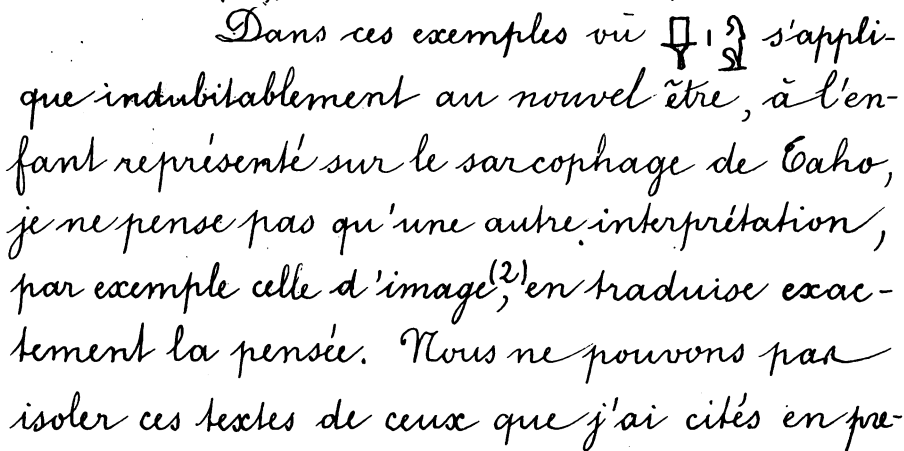 Dans ces exemples où s'appli-
que indubitablement au nouvel être, à l'en-
fant représenté sur le sarcophage de Taho,
je ne pense pas qu'une autre interprétation,
par exemple celle d'image,(2) en traduise exac-
tement la pensée. Nous ne pouvons pas
isoler ces textes de ceux que j'ai cités en pre-